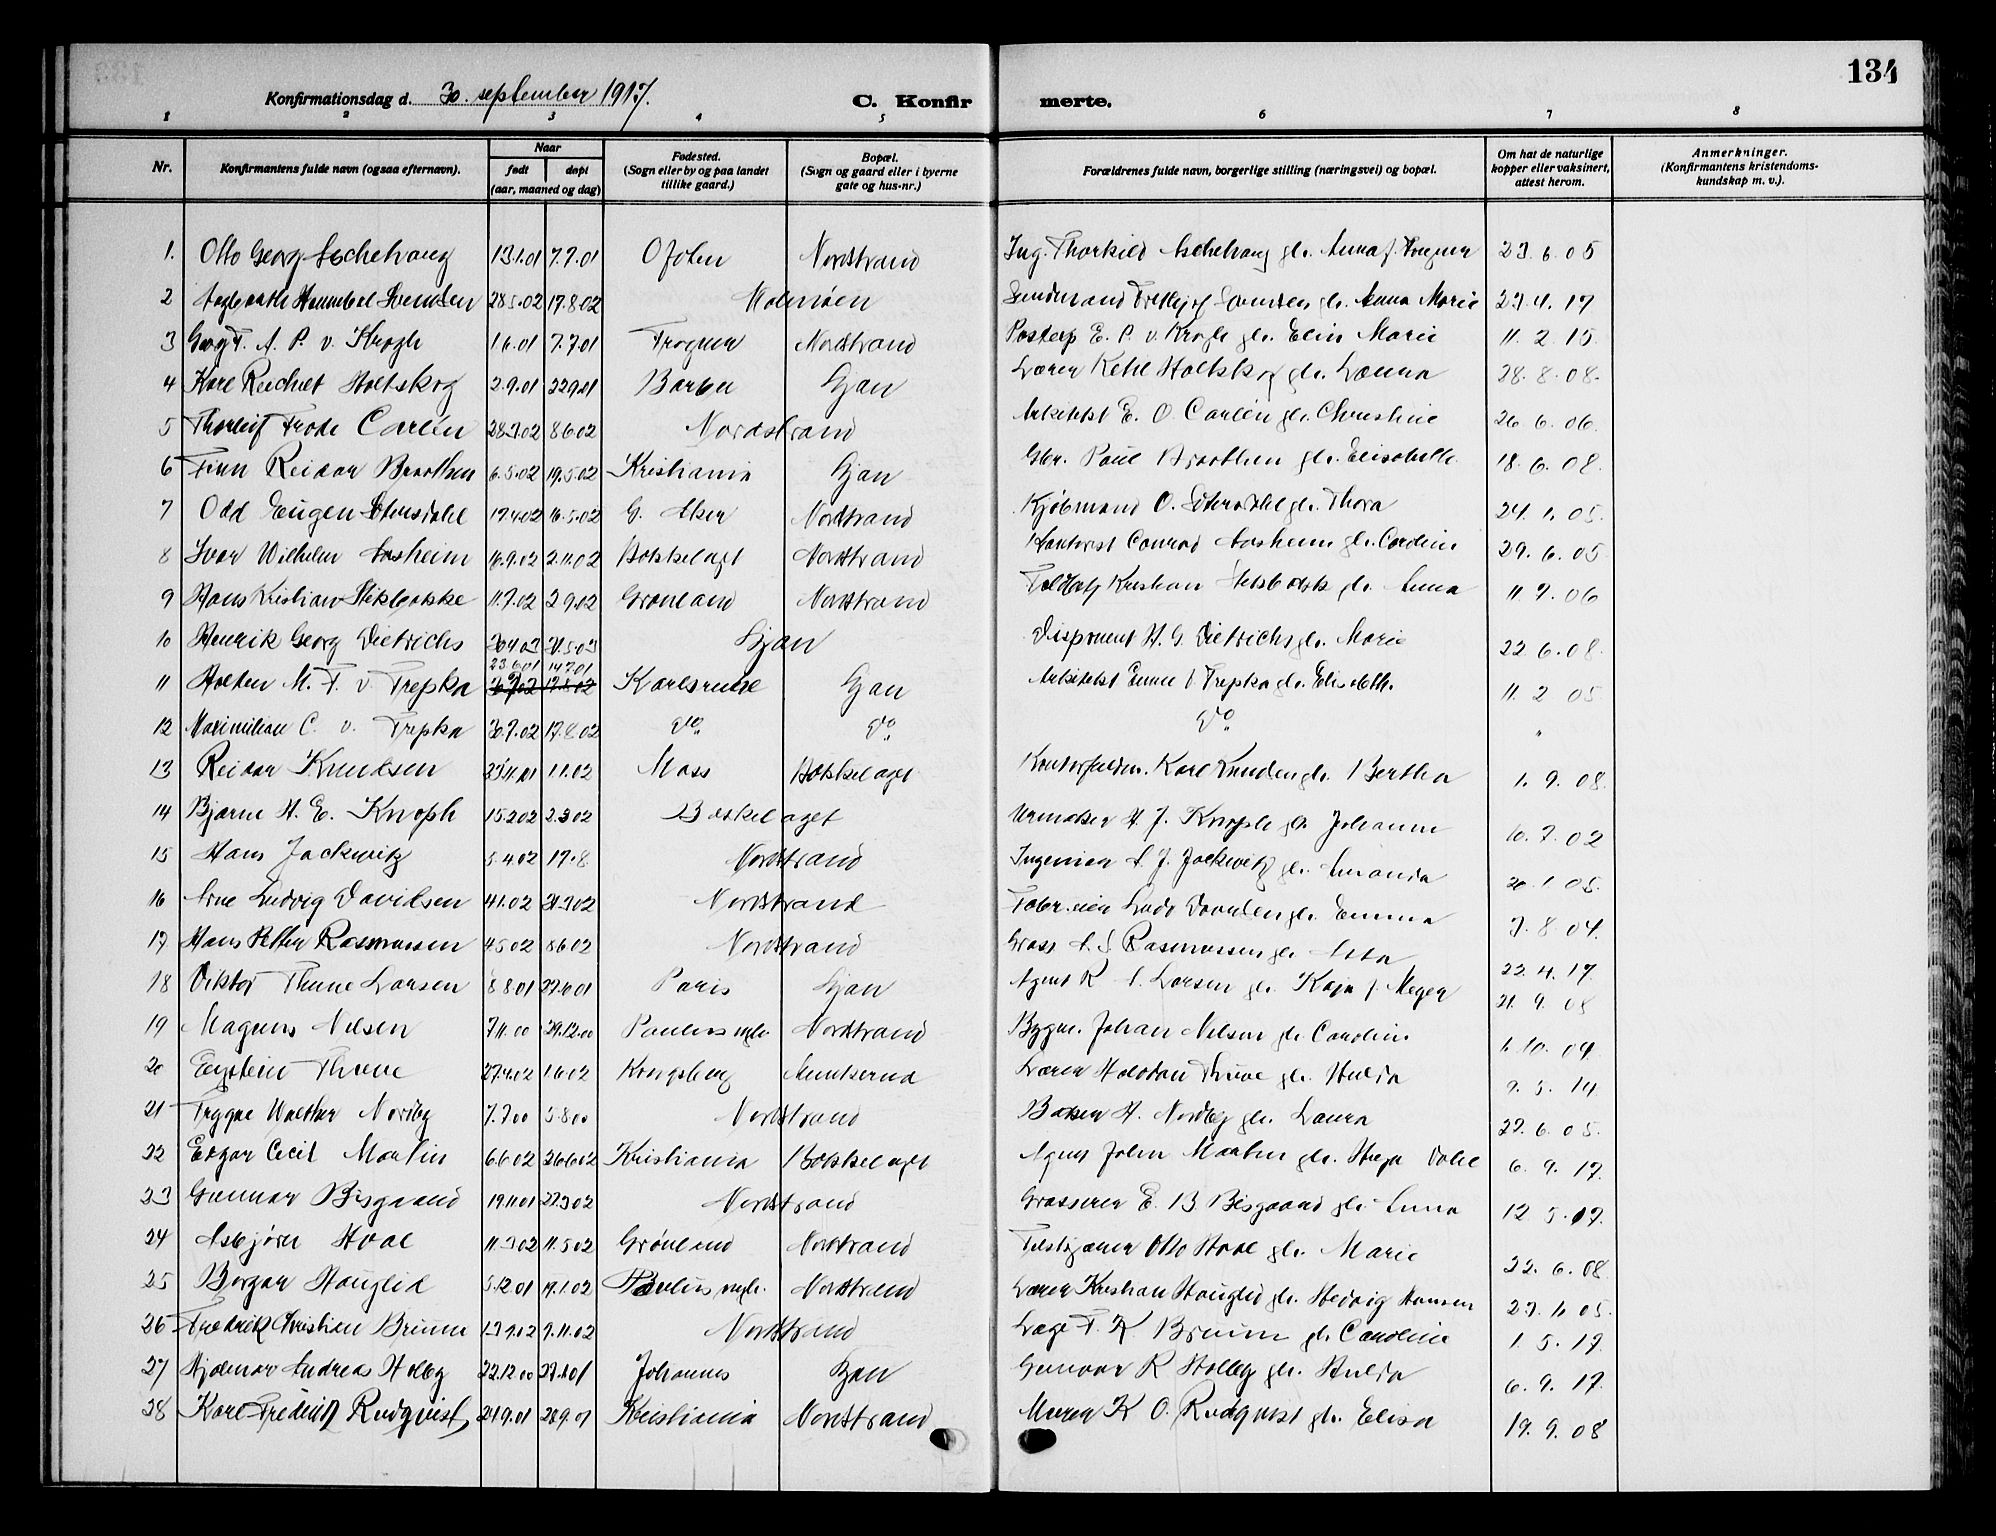 134
Konfirmationsdag d. 30. september 1917. C. Konfirmerte.
1 2 3 4 5 6 7 8
Nr. Konfirmantens fulde navn (ogsaa efternavn). Naar født døpt (aar, maaned og dag) Fødested. (Sogn eller by og paa landet tillike gaard.) Bopæl. (Sogn og gaard eller i byerne gate og hus-nr.) Forældrenes fulde navn, borgerlige stilling (næringsvei) og bopæl. Om hat de naturlige kopper eller vaksinert, attest herom. Anmerkninger. (Konfirmantens kristendomskundskap m. v.).
1. Otto Georg Aschehoug 13.1.01 7.7.01 Ofoten Nordstrand Ing. Thorkild Aschehoug glr. Anna f. 23.6.05
2 Svendsen 28.5.02 17.8.02 Malmøen Svendsen glr. Anna Marie 23.4.17
3 Georg F. A. P. v. Krogh 1.6.01 7.7.01 Frogner Nordstrand Postexp E. P. v. Krogh glr. Elin Marie 11.2.15.
4 Kåre Holtskog 2.9.01 22.9.01 Barbu Ljan Lærer Ketil Holtskog glr. 28.8.08.
5 Thorleif Frode Carlén 28.3.02 8.6.02 Nordstrand Arkitekt E. O. Carlén glr. Christine 26.6.06.
6 Finn Reidar Braathen 6.5.02 19.5.02 Kristiania Ljan Gbr. Paul Braathen glr. Elisabeth 18.6.08.
7 Odd Eugen 17.4.02 16.5.02 G. Aker Nordstrand Kjøbmand O. glr. Thora 24.1.05.
8 Ivar Wilhelm Aasheim 16.9.02 2.11.02 Bækkelaget Nordstrand Kontorist Conrad Aasheim glr. Cordelie 29.6.05
9 Hans Kristian 11.7.02 2.9.02 Grønland Nordstrand Kristian glr. Anna 11.7.06
10 Henrik Georg Dietrichs 21.5.03 Ljan Disponent H. G. Dietrichs glr. Marie 22.6.08.
11 Holten M. F. v. Trepka 23.6.01 14.7.01 Karlsruhe Ljan Arkitekt v. Trepka glr. Elisabeth. 11.2.05
12 Maximilian C. v. Trepka 30.7.02 17.8.02 do do do "
13 Reidar Knudsen 1.1.02 Moss Bækkelaget Kontorfuldm. Karl Knudsen glr. Bertha 1.9.08.
14 Bjarne H. E. Knoph 15.2.02 2.3.02 Bækkelaget Urmaker H. J. Knoph glr. Johanne 10.7.02
15 Hans Jackwitz 5.4.02 17.8 Nordstrand Ingeniør A. J. Jackwitz glr. Amanda 20.1.05.
16 Arne Ludvig Davidsen 4.1.02 31.3.02 Nordstrand Ludv Davidsen glr. Emma 3.8.04.
17 Hans Petter Rasmussen 4.5.02 8.6.02 Nordstrand Gross A. S. Rasmussen glr. Asta 22.4.17.
18 Viktor Thune Larsen 8.8.01 Paris Ljan Agent R. A. Larsen glr. Kaja f. Meyer 21.9.08
19 Magnus Nilsen 7.11.00 29.12.00 Paulus mgh. Nordstrand Bygm. Johan Nilsen glr. Caroline 1.10.09.
20 Eystein Thuve 27.4.02 1.6.02 Kongsberg Munkerud Lærer Halvdan Thuve glr. Hulda 9.5.14
21 Trygve Walther Nordby 7.7.00 5.8.00 Nordstrand Baker H. Nordby glr. Laura 27.6.05.
22 Edgar Cecil Martin 6.6.02 26.6.02 Kristiania Bækkelaget Agent John Martin glr. 6.9.17.
23 Gunnar Bisgaard 19.11.01 27.3.02 Nordstrand Grosserer E. B. Bisgaard glr. Anna 12.5.17.
24 Asbjørn Hoel 11.3.02 11.5.02 Grønland Nordstrand Otto Hoel glr. Marie 22.6.08
25 Borgar Hauglid 5.12.01 19.1.02 Paulus mgh. Nordstrand Lærer Kristian Hauglid glr. Hedvig Hansen 27.1.05.
26 Fredrik Christian Bruun 13.9.02 9.11.02 Nordstrand Læge F. K. Bruun glr. Caroline 1.5.17.
27 Hjalmar Andreas Holby 22.12.00 27.1.01 Johannes Ljan R. Holby glr. Hulda 6.9.17.
28 Karl Fredrik Rudqvist 21.9.01 Kristiania Nordstrand Murer K. O. Rudqvist glr. Elisa 19.9.08